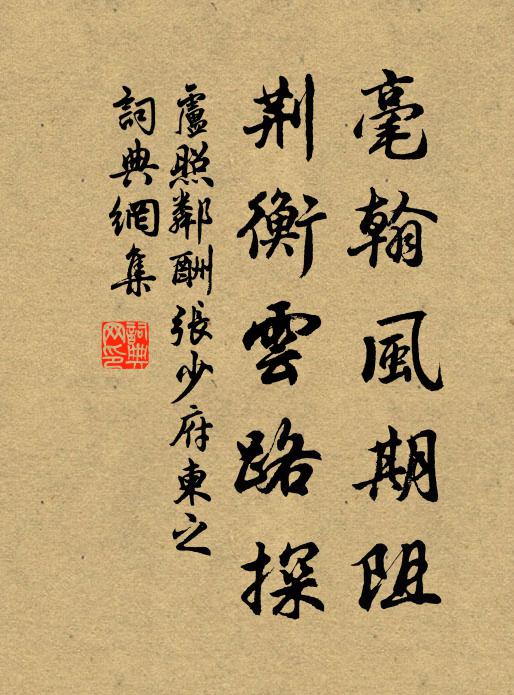 毫翰風期阻
荆衡雲路探
盧照鄰酬張少府東之
詞典網集
詞典网印